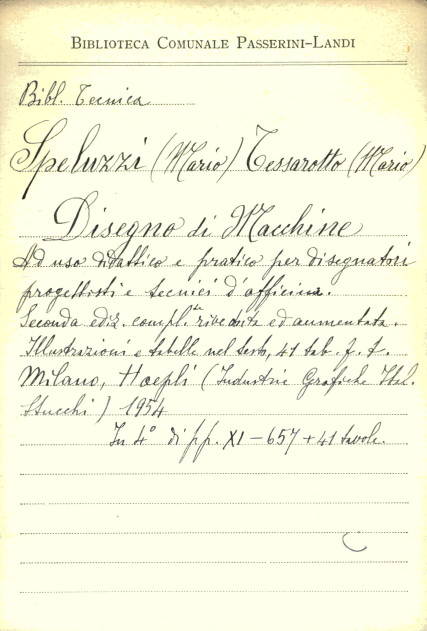 BIBLIOTECA COMUNALE PASSERINI-LANDI
Bibl. Tecnica
Speluzzi (Mario) Tessarotto (Mario)
Disegno di Macchine
Ad uso didattico e pratico per disegnatori
progettisti e tecnici d'officina.
Seconda ediz. compl.te riveduta ed aumentata.
Illustrazioni e tabelle nel testo, 41 tab. f. t.
Milano, Hoepli (Industrie Grafiche Ital.
Stucchi) 1954
In 4° di pp. XI-657+41 tavole.